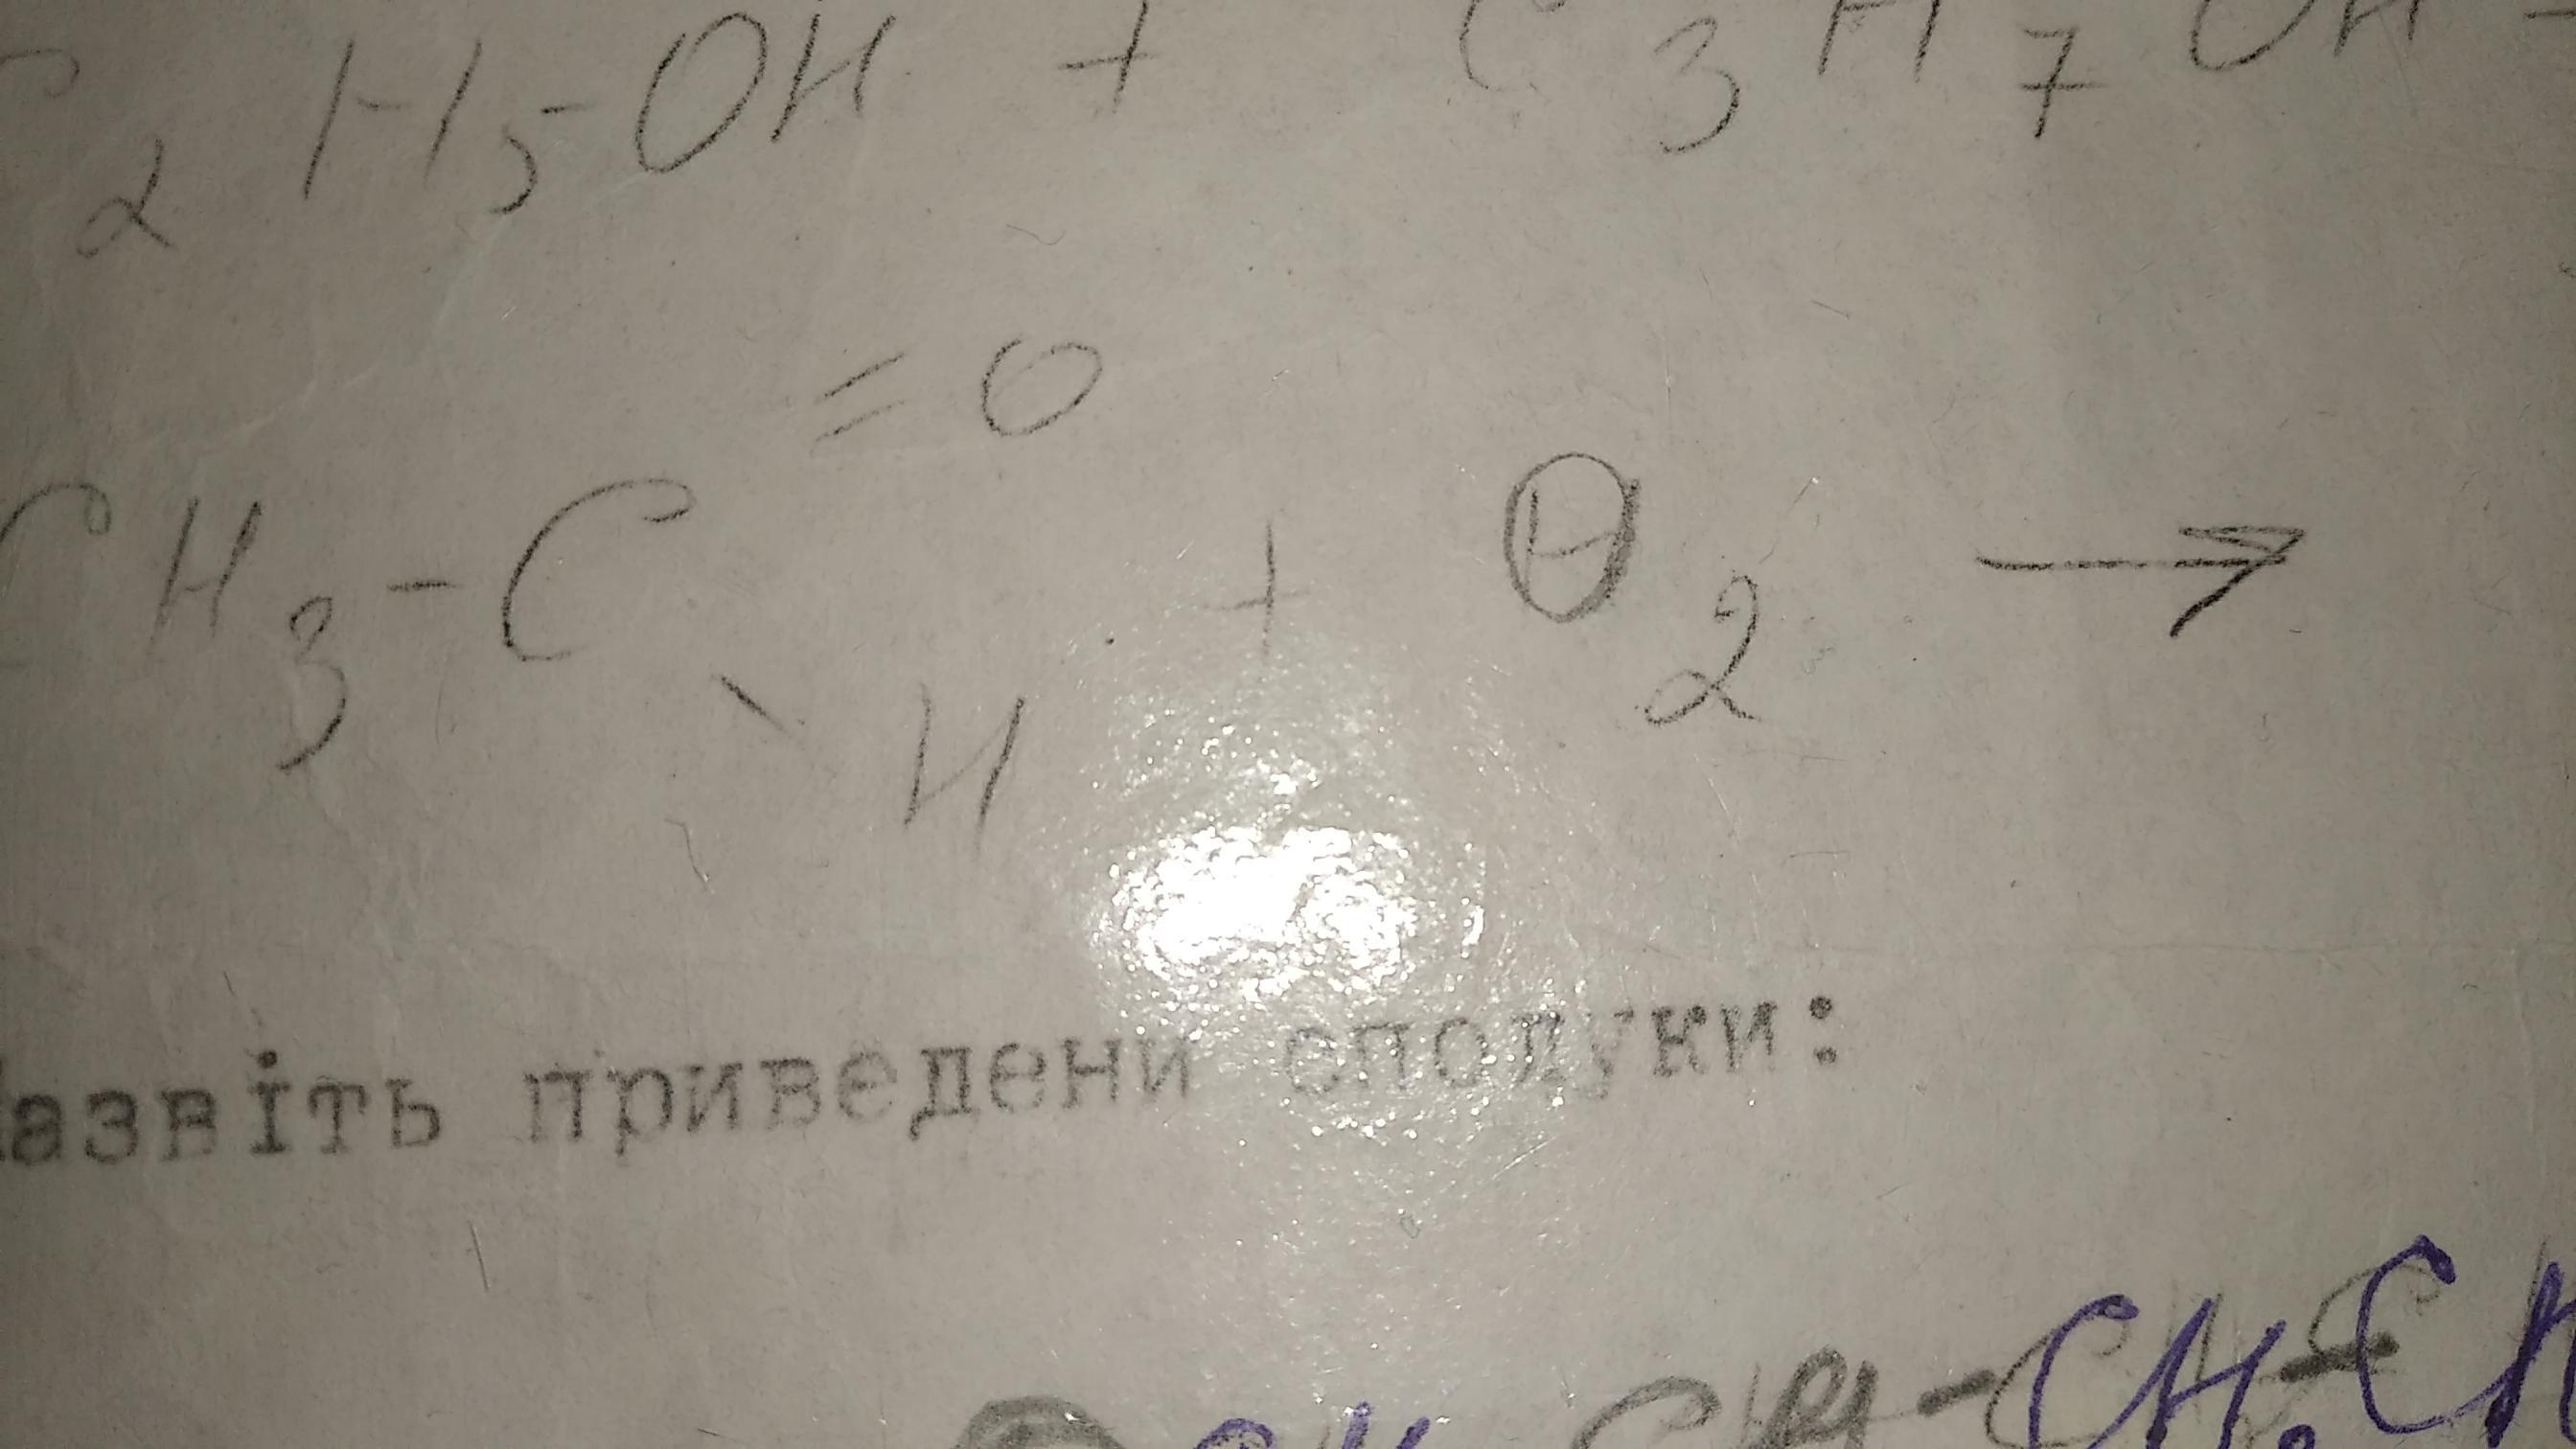 C2H5OH + C3H7OH
=O
CH3-C + O2 →
\H
Назвіть приведени сполуки:
CH-CH2-CH